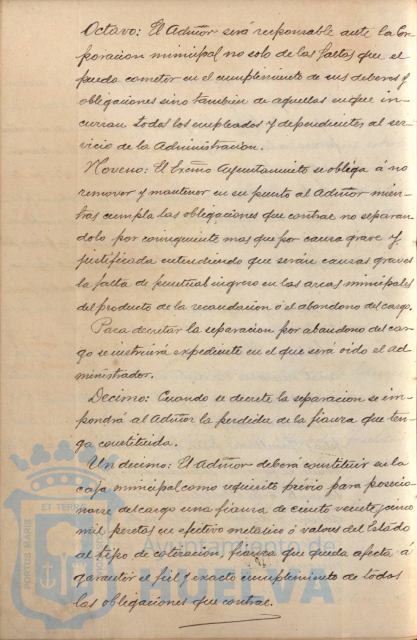 Octavo: El Admor será responsable ante la Cor
poracion municipal no solo de las faltas que el
pueda cometer en el cumplimiento de sus deberes y
obligaciones sino tambien de aquellas en que in-
curran todos los empleados y dependientes al ser-
vicio de la Administracion.
Noveno: El Excmo Ayuntamiento se obliga á no
remover y mantener en su puesto al Admor mien-
tras cumpla las obligaciones que contrae no separan
dolo por consiguiente mas que por causa grave y
justificada entendiendo que serán causas graves
la falta de puntual ingreso en las arcas municipales
del producto de la recaudacion ó el abandono del cargo.
Para decretar la separacion por abandono del car
go se instruirá expediente en el que será oido el ad
ministrador.
Decimo: Cuando se decrete la separacion se im-
pondrá al Admor la perdida de la fianza que ten-
ga constituida.
Undecimo: El Admor deberá constituir en la
caja municipal como requisito prévio para posecio
narse del cargo una fianza de ciento veinte y cinco
mil pesetas en efectivo metalico ó valores del Estado
al tipo de cotizacion, fianza que queda afecta á
garantir el fiel y exacto cumplimiento de todas
las obligaciones que contrae.
PORTUS MARIS ET TERRAE
Ayuntamiento de
HUELVA